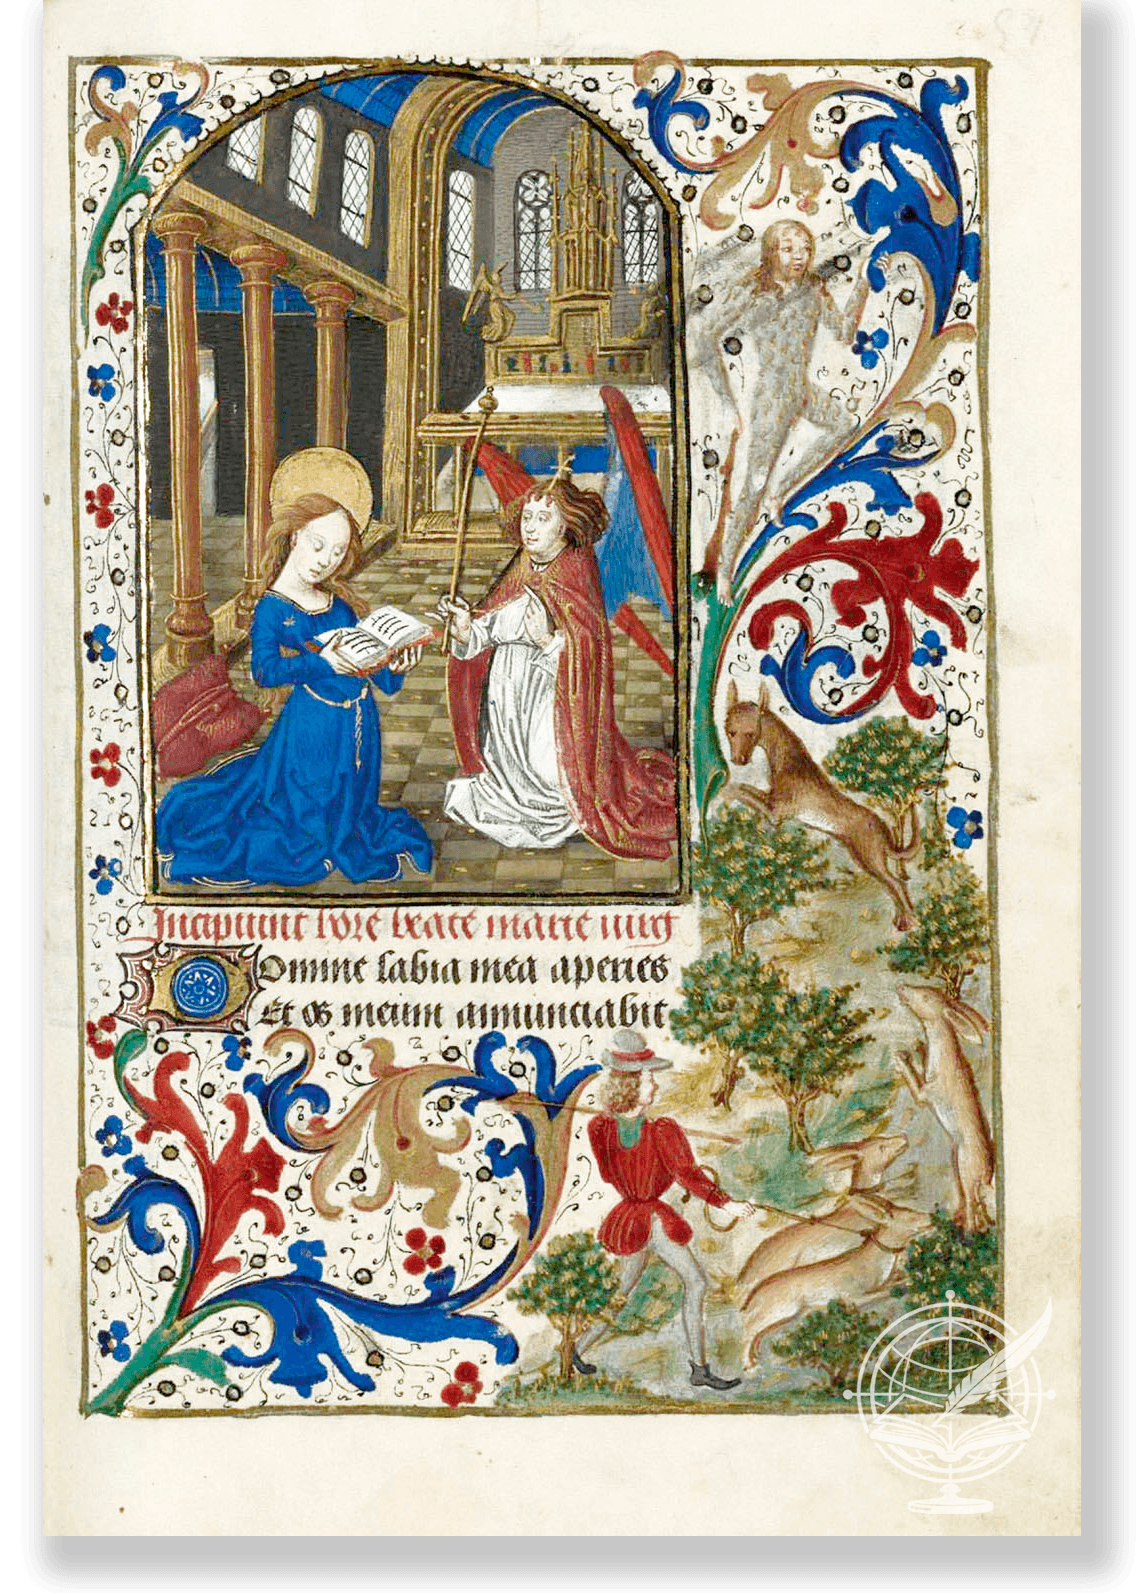 Incipiunt hore beate marie uirg
Domine labia mea aperies
Et os meum annunciabit